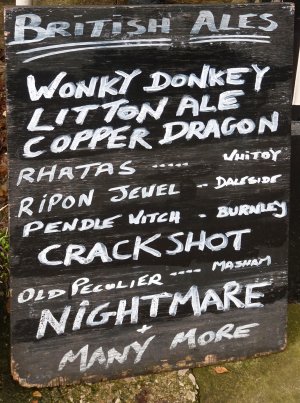 BRITISH ALES
WONKY DONKEY
LITTON ALE
COPPER DRAGON
RHATAS ..... WHITBY
RIPON JEWEL -- DALESIDE
PENDLE WITCH - BURNLEY
CRACKSHOT
OLD PECULIER ---- MASHAM
NIGHTMARE
+
MANY MORE